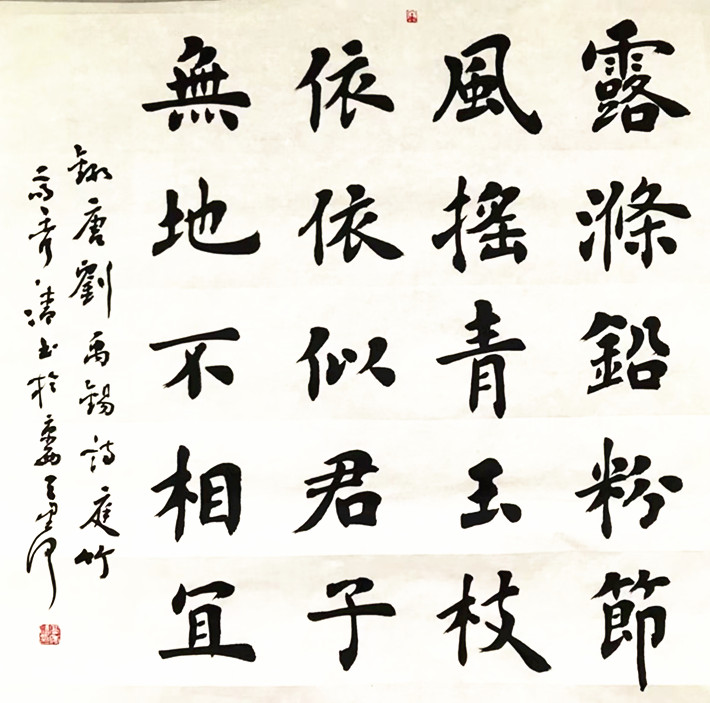 露滌鉛粉節
風搖青玉枝
依依似君子
無地不相宜
錄唐劉禹錫詩庭竹
秀清書於